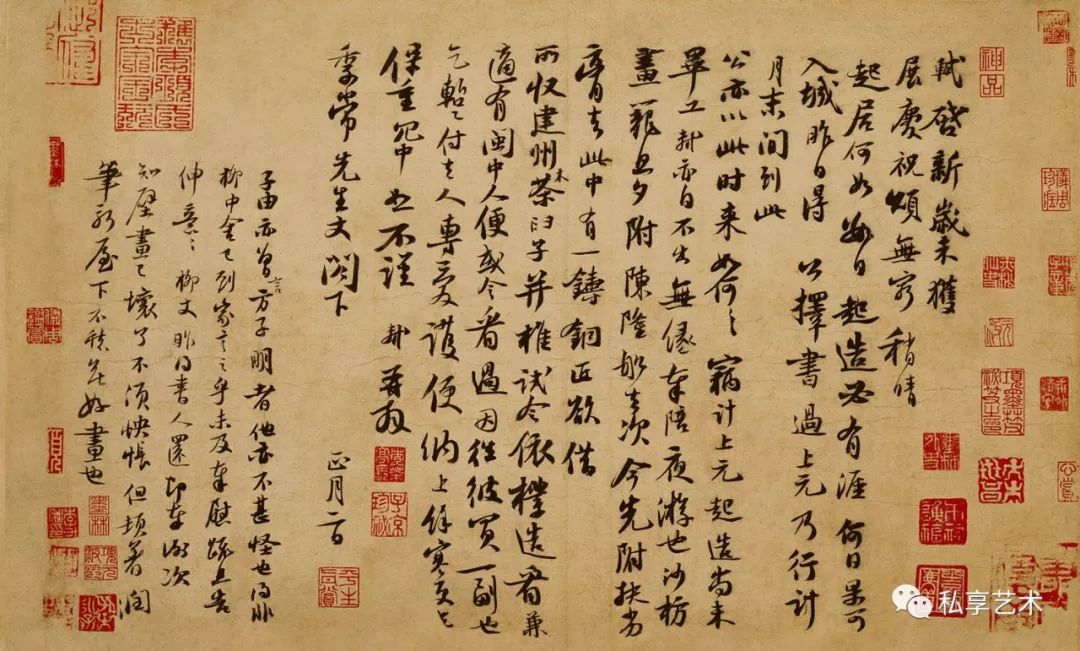 軾啓新歲未獲
展慶祝頌無窮稍晴
起居何如數日起造必有涯何日果可
入城昨日得公擇書過上元乃行計
月末間到此
公亦以此時來如何々竊計上元起造尚未
畢工軾亦自不出無緣奉陪夜遊也沙枋
畫籠旦夕附陳隆船去次今先附扶劣
膏去此中有一鑄銅匠欲借
所收建州木茶臼子并椎試令依樣造看兼
適有閩中人便或令看過因往彼買一副也
乞暫付去人專愛護便納上餘寒更乞
保重冗中恕不謹 軾再拜
季常先生丈閣下 正月二日
子由亦曾言方子明者他亦不甚怪也得非
柳中舍已到家言之乎未及奉慰疏且告
伸意々柳丈昨得書人還即奉謝次
知壁畫已壞了不須怏悵但頓著潤
筆新屋下不愁無好畫也
神品
私享艺术